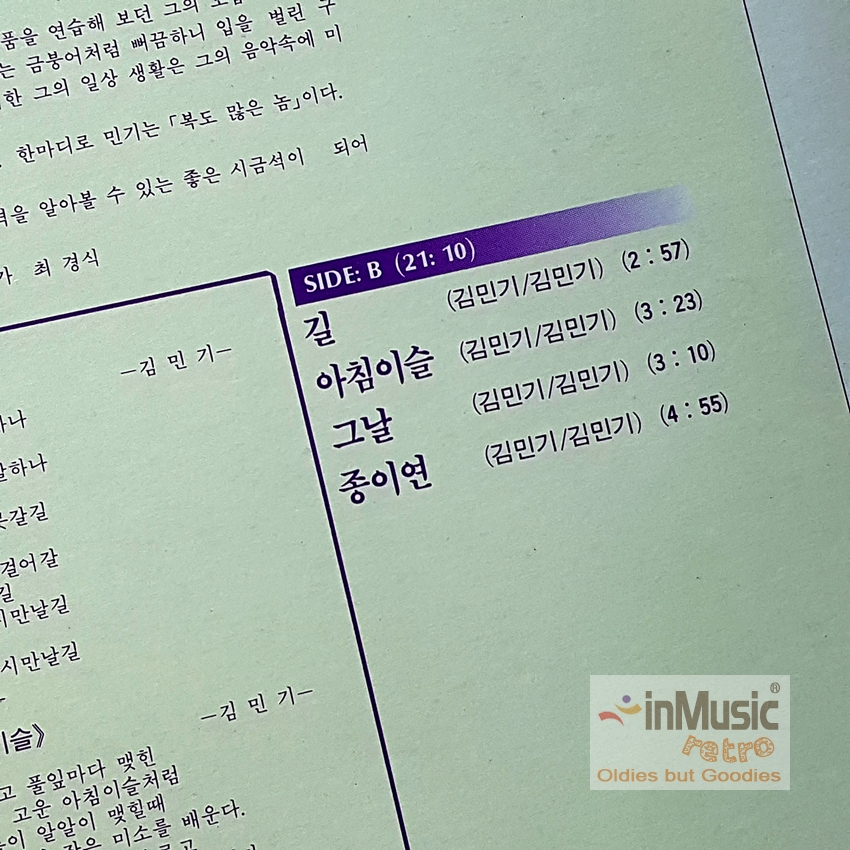 품을 연습해 보던 그의 모습
는 금붕어처럼 뻐끔하니 입을 벌린 구
한 그의 일상 생활은 그의 음악속에 미
한마디로 민기는 「복도 많은 놈」이다.
을 알아볼 수 있는 좋은 시금석이 되어
가 최 경식
SIDE: B (21: 10)
길 (김민기/김민기) (2 : 57)
아침이슬 (김민기/김민기) (3 : 23)
그날 (김민기/김민기) (3 : 10)
종이연 (김민기/김민기) (4 : 55)
—김 민 기—
하나
갈길
걸어갈
길
만날길
시만날길
—김 민 기—
이슬》
고 풀잎마다 맺힌
고운 아침이슬처럼
이 알알이 맺힐때
작은 미소를 배운다.
inMusic®
retro
Oldies but Goodies